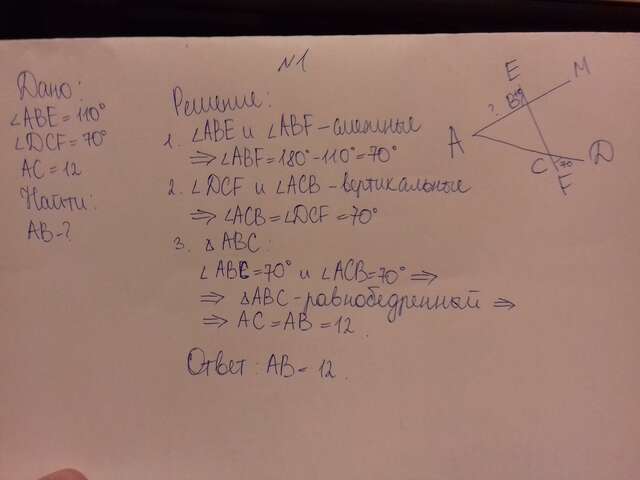 №1
Дано:
∠ABE = 110°
∠DCF = 70°
AC = 12
Найти:
AB - ?
Решение:
1. ∠ABE и ∠ABF - смежные
⇒ ∠ABF = 180° - 110° = 70°
2. ∠DCF и ∠ACB - вертикальные
⇒ ∠ACB = ∠DCF = 70°
3. △ABC:
∠ABC = 70° и ∠ACB = 70° ⇒
⇒ △ABC - равнобедренный ⇒
⇒ AC = AB = 12.
Ответ: AB = 12.
E
M
?
B
A
C
70
D
F